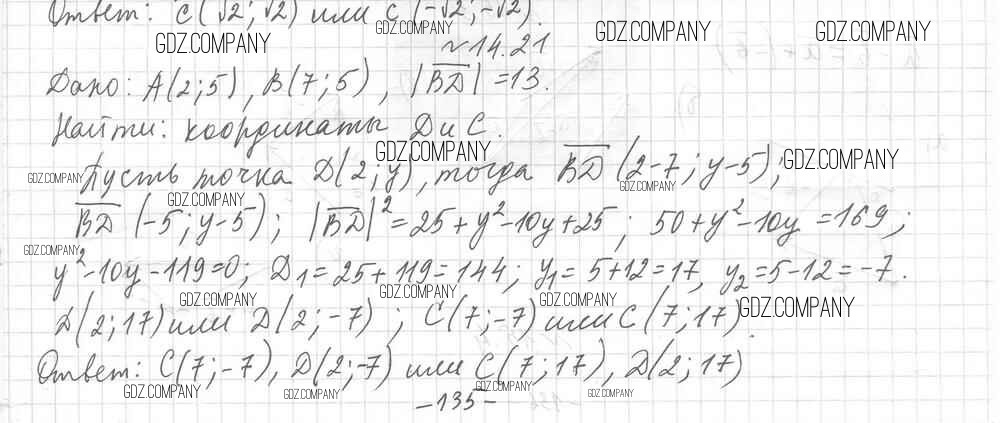 Ответ: C(√2; √2) или C(-√2; -√2).
GDZ.COMPANY GDZ.COMPANY GDZ.COMPANY GDZ.COMPANY
~14.21
Дано: A(2;5), B(7;5), |BD| = 13.
Найти: координаты D и C.
GDZ.COMPANY GDZ.COMPANY
Пусть точка D(2; y), тогда BD (2-7; y-5);
GDZ.COMPANY GDZ.COMPANY GDZ.COMPANY
BD (-5; y-5); |BD|² = 25 + y² - 10y + 25; 50 + y² - 10y = 169;
GDZ.COMPANY
y² - 10y - 119 = 0; D₁ = 25 + 119 = 144; y₁ = 5 + 12 = 17, y₂ = 5 - 12 = -7.
GDZ.COMPANY GDZ.COMPANY GDZ.COMPANY GDZ.COMPANY
D(2; 17) или D(2; -7); C(7; -7) или C(7; 17).
Ответ: C(7; -7), D(2; -7) или C(7; 17), D(2; 17)
GDZ.COMPANY GDZ.COMPANY GDZ.COMPANY GDZ.COMPANY
-135-